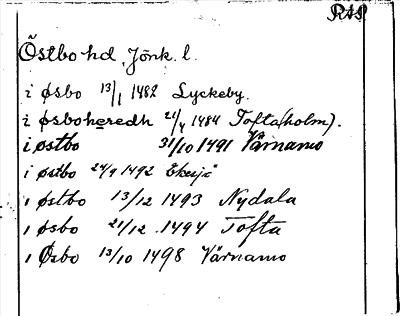 RAP
Östbo hd, Jönk. l.
i øsbo 13/1 1482 Lyckeby.
i øsboheredh 21/4 1484 Tofta(holm).
i østbo 31/10 1491 Värnamo
i østbo 24/9 1492 Eksjö
i østbo 13/12 1493 Nydala
i øsbo 21/12 1494 Tofta
i Øsbo 13/10 1498 Värnamo